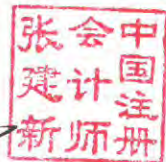 中国注册
会计师
张建新